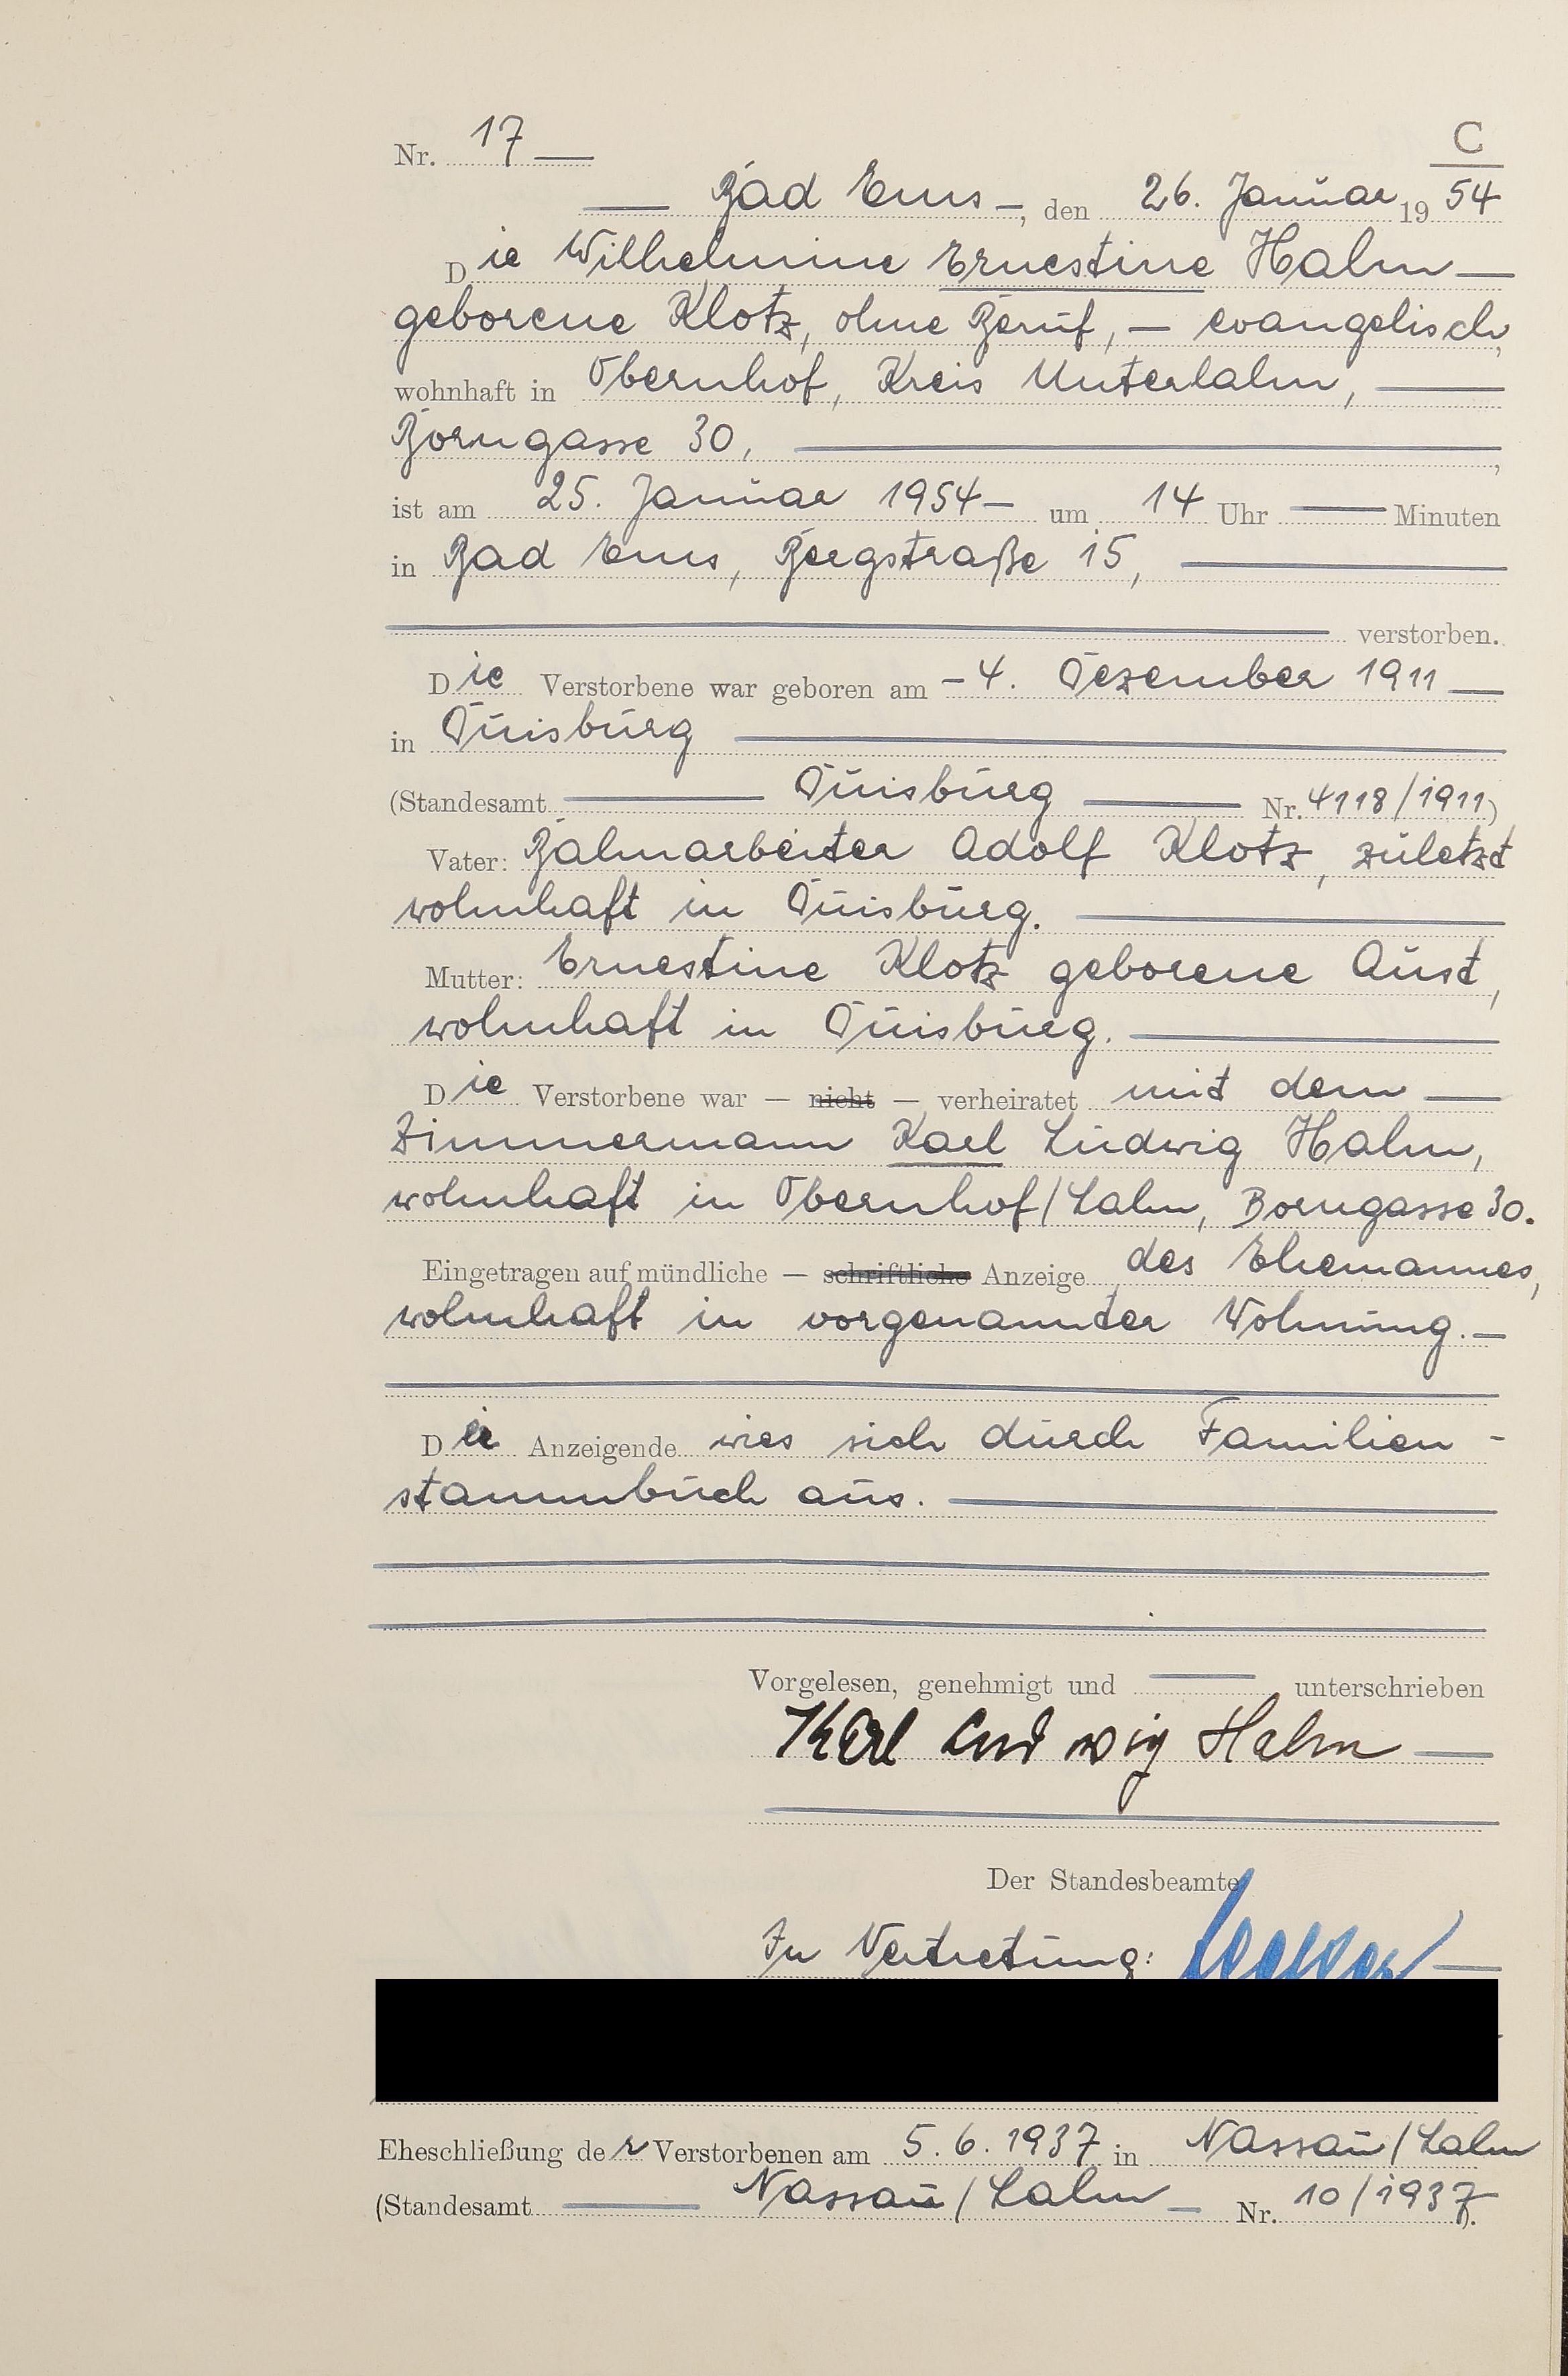 Nr. 17 — C
— Bad Ems —, den 26. Januar 1954
Die Wilhelmine Ernestine Halm —
geborene Klotz, ohne Beruf, — evangelisch,
wohnhaft in Obernhof, Kreis Unterlahn, —
Borngasse 30, —,
ist am 25. Januar 1954 — um 14 Uhr — Minuten
in Bad Ems, Bergstraße 15, —
— verstorben.
Die Verstorbene war geboren am - 4. Dezember 1911 —
in Duisburg —
(Standesamt — Duisburg — Nr. 4118/1911)
Vater: Bahnarbeiter Adolf Klotz, zuletzt
wohnhaft in Duisburg. —
Mutter: Ernestine Klotz geborene Aust,
wohnhaft in Duisburg. —
Die Verstorbene war — nicht — verheiratet mit dem —
Zimmermann Karl Ludwig Halm,
wohnhaft in Obernhof/Lahn, Borngasse 30.
Eingetragen auf mündliche — schriftliche Anzeige des Ehemannes,
wohnhaft in vorgenannter Wohnung. —
Der Anzeigende wies sich durch Familien -
stammbuch aus. —
Vorgelesen, genehmigt und — unterschrieben
Karl Ludwig Halm —
Der Standesbeamte
In Vertretung:
Eheschließung der Verstorbenen am 5.6.1937 in Nassau/Lahn
(Standesamt — Nassau/Lahn — Nr. 10/1937).